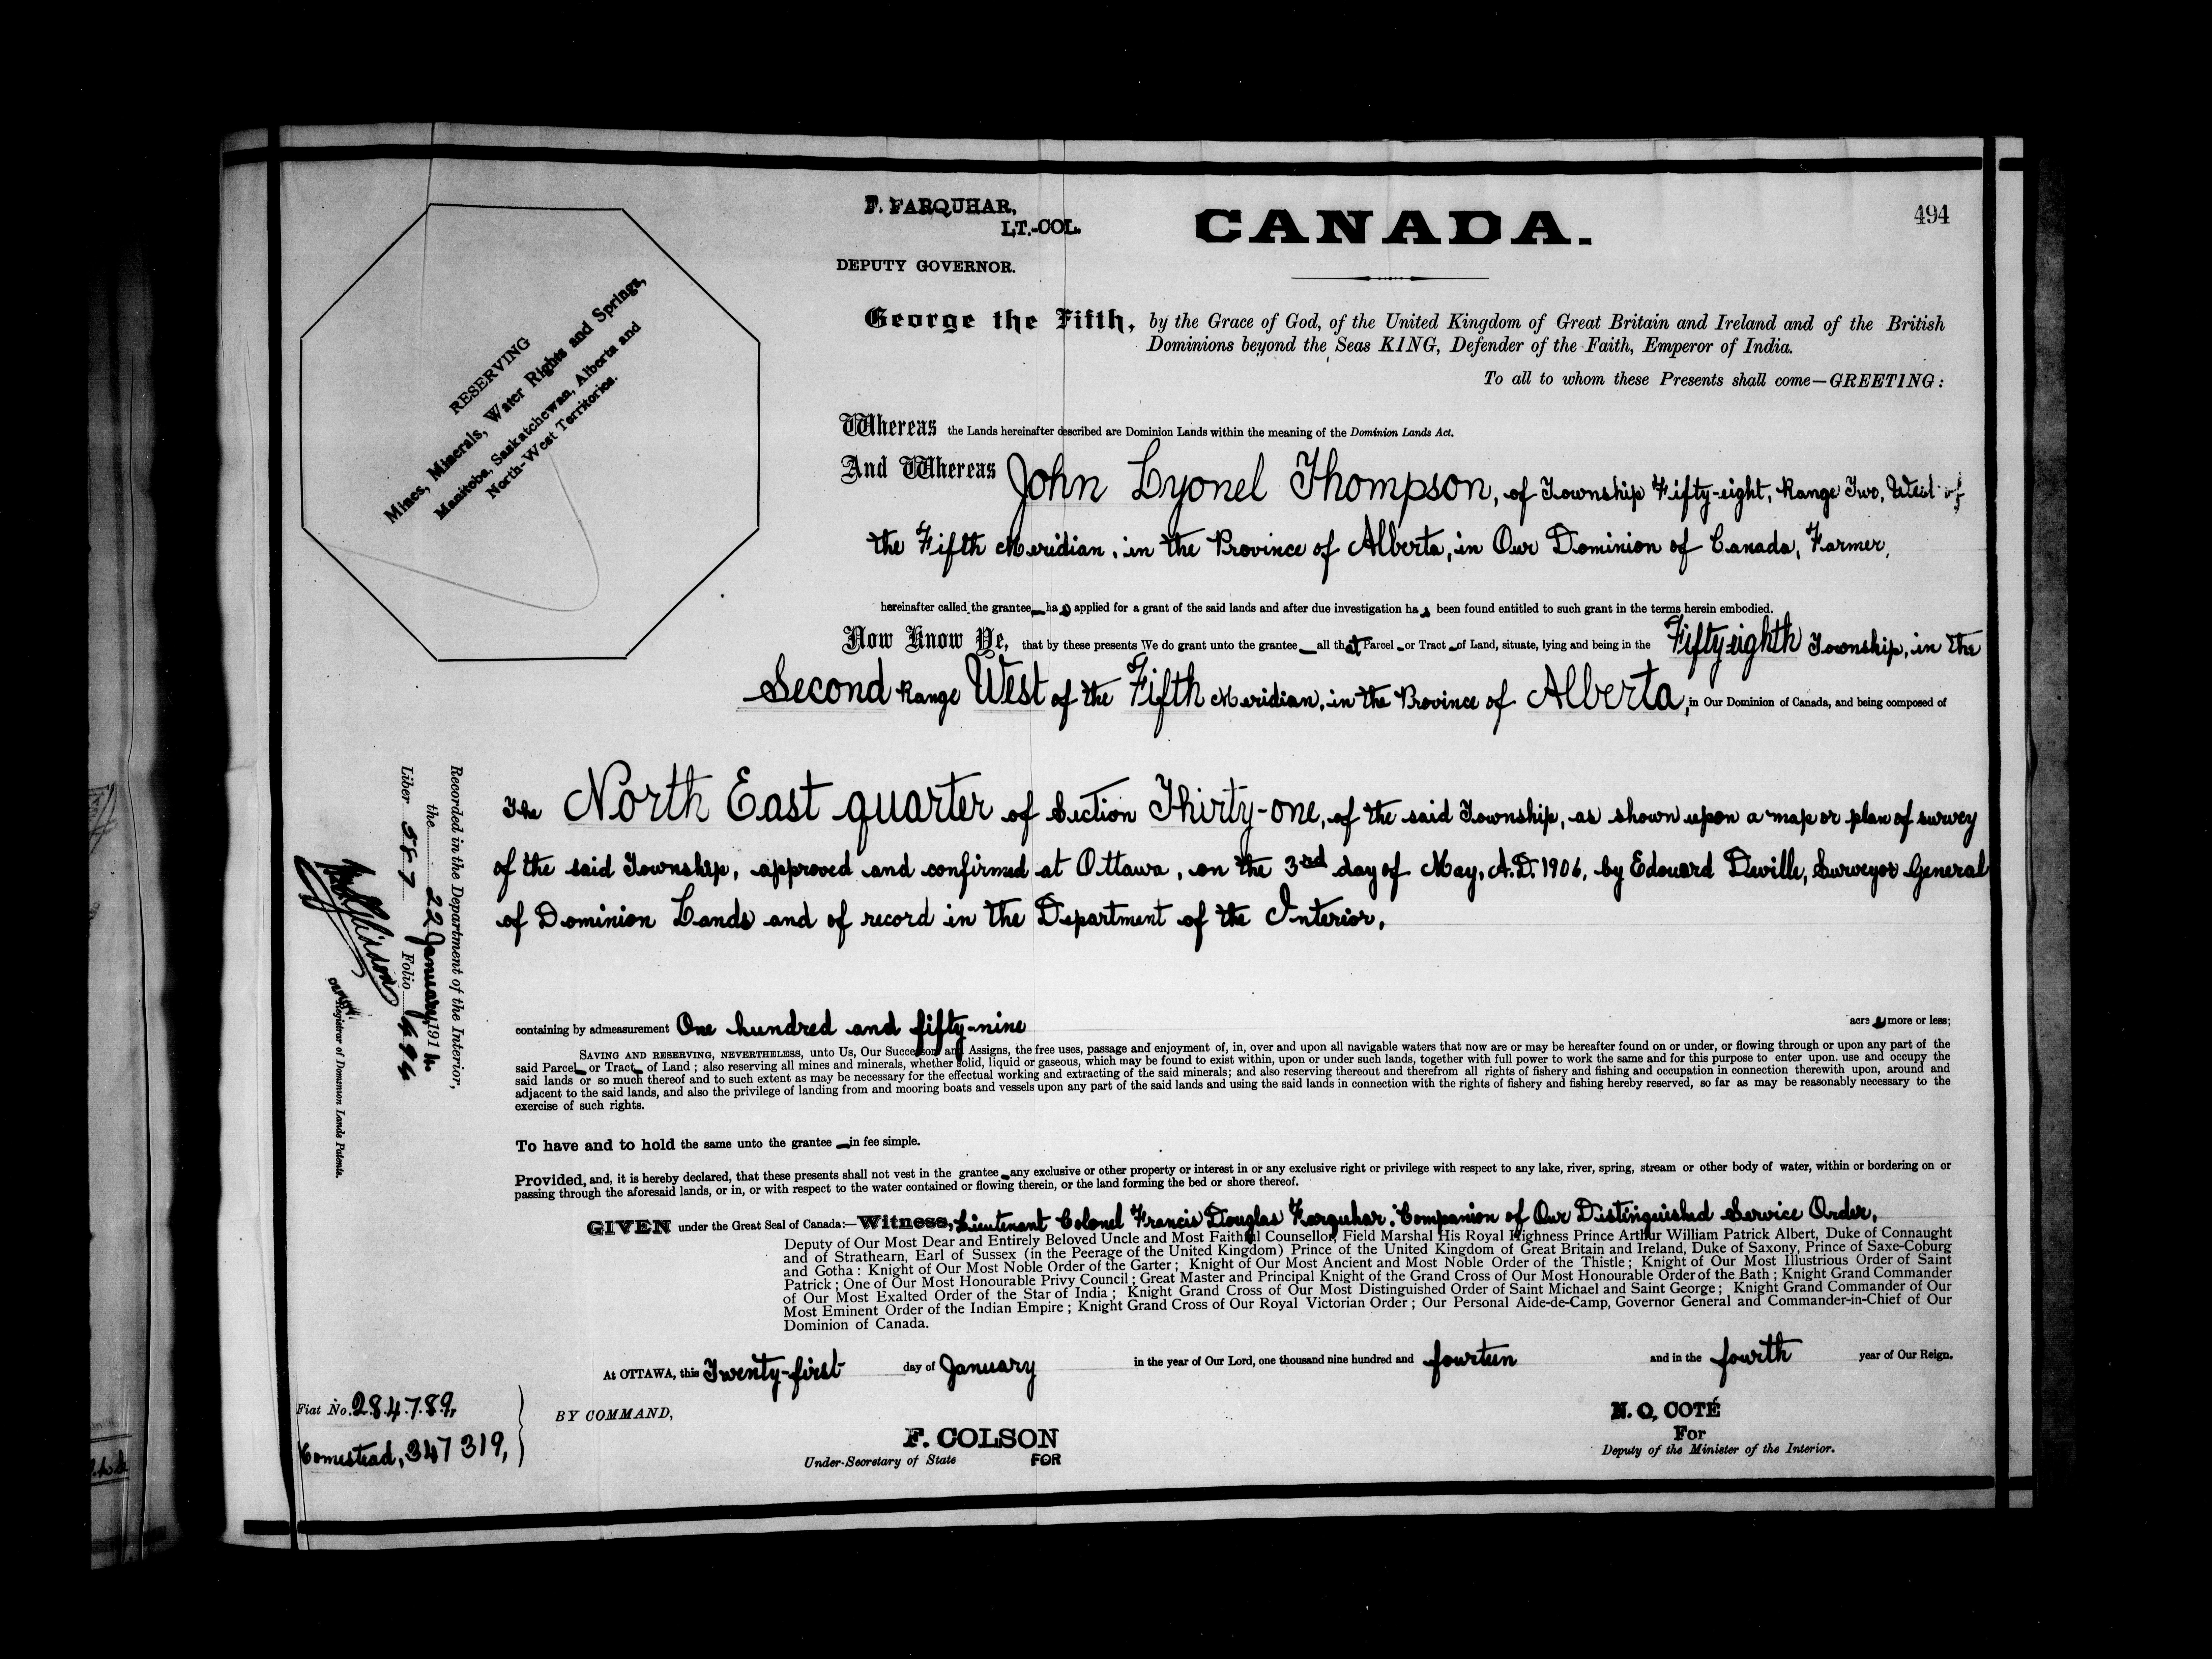 F. FARQUHAR,
LT.-COL.
DEPUTY GOVERNOR.
CANADA.
494
RESERVING
Mines, Minerals, Water Rights and Springs,
Manitoba, Saskatchewan, Alberta and
North-West Territories.
George the Fifth, by the Grace of God, of the United Kingdom of Great Britain and Ireland and of the British
Dominions beyond the Seas KING, Defender of the Faith, Emperor of India.
To all to whom these Presents shall come—GREETING:
Whereas the Lands hereinafter described are Dominion Lands within the meaning of the Dominion Lands Act.
And Whereas John Lyonel Thompson, of Township Fifty-eight, Range Two, West of
the Fifth Meridian, in the Province of Alberta, in Our Dominion of Canada, Farmer,
hereinafter called the grantee has applied for a grant of the said lands and after due investigation has been found entitled to such grant in the terms herein embodied.
Now Know Ye, that by these presents We do grant unto the grantee all that Parcel or Tract of Land, situate, lying and being in the Fifty-eighth Township, in the
Second Range West of the Fifth Meridian, in the Province of Alberta, in Our Dominion of Canada, and being composed of
The North East quarter of Section Thirty-one, of the said Township, as shown upon a map or plan of survey
of the said Township, approved and confirmed at Ottawa, on the 3rd day of May, A.D. 1906, by Edouard Deville, Surveyor General
of Dominion Lands and of record in the Department of the Interior,
containing by admeasurement One hundred and fifty-nine acres more or less;
SAVING AND RESERVING, NEVERTHELESS, unto Us, Our Successors and Assigns, the free uses, passage and enjoyment of, in, over and upon all navigable waters that now are or may be hereafter found on or under, or flowing through or upon any part of the
said Parcel or Tract of Land; also reserving all mines and minerals, whether solid, liquid or gaseous, which may be found to exist within, upon or under such lands, together with full power to work the same and for this purpose to enter upon. use and occupy the
said lands or so much thereof and to such extent as may be necessary for the effectual working and extracting of the said minerals; and also reserving thereout and therefrom all rights of fishery and fishing and occupation in connection therewith upon, around and
adjacent to the said lands, and also the privilege of landing from and mooring boats and vessels upon any part of the said lands and using the said lands in connection with the rights of fishery and fishing hereby reserved, so far as may be reasonably necessary to the
exercise of such rights.
To have and to hold the same unto the grantee in fee simple.
Provided, and, it is hereby declared, that these presents shall not vest in the grantee any exclusive or other property or interest in or any exclusive right or privilege with respect to any lake, river, spring, stream or other body of water, within or bordering on or
passing through the aforesaid lands, or in, or with respect to the water contained or flowing therein, or the land forming the bed or shore thereof.
GIVEN under the Great Seal of Canada:—Witness, Lieutenant Colonel Francis Douglas Farquhar, Companion of Our Distinguished Service Order,
Deputy of Our Most Dear and Entirely Beloved Uncle and Most Faithful Counsellor, Field Marshal His Royal Highness Prince Arthur William Patrick Albert, Duke of Connaught
and of Strathearn, Earl of Sussex (in the Peerage of the United Kingdom) Prince of the United Kingdom of Great Britain and Ireland, Duke of Saxony, Prince of Saxe-Coburg
and Gotha: Knight of Our Most Noble Order of the Garter; Knight of Our Most Ancient and Most Noble Order of the Thistle; Knight of Our Most Illustrious Order of Saint
Patrick; One of Our Most Honourable Privy Council; Great Master and Principal Knight of the Grand Cross of Our Most Honourable Order of the Bath; Knight Grand Commander
of Our Most Exalted Order of the Star of India; Knight Grand Cross of Our Most Distinguished Order of Saint Michael and Saint George; Knight Grand Commander of Our
Most Eminent Order of the Indian Empire; Knight Grand Cross of Our Royal Victorian Order; Our Personal Aide-de-Camp, Governor General and Commander-in-Chief of Our
Dominion of Canada.
At OTTAWA, this Twenty-first day of January in the year of Our Lord, one thousand nine hundred and fourteen and in the fourth year of Our Reign.
BY COMMAND,
F. COLSON
Under-Secretary of State FOR
N. O. COTÉ
For
Deputy of the Minister of the Interior.
Fiat No. 284789,
Homestead, 347319,
Recorded in the Department of the Interior,
the 22 January 1914
Liber 587 Folio 494
Deputy Registrar of Dominion Lands Patents.